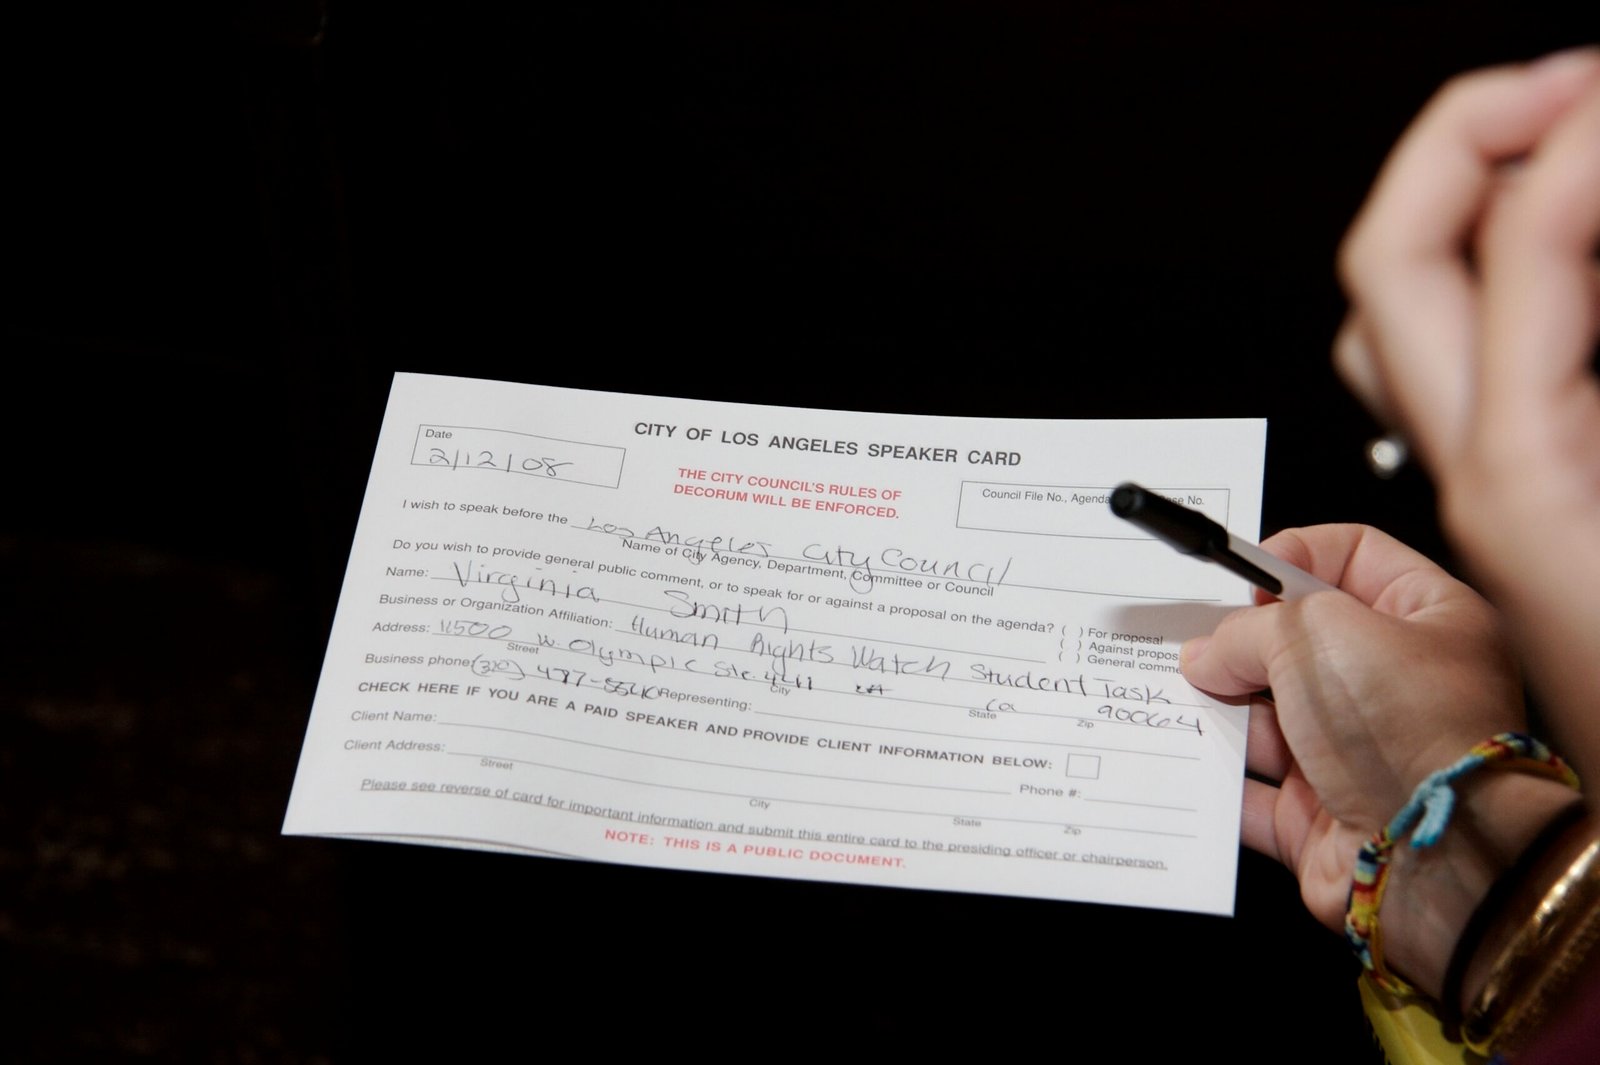 CITY OF LOS ANGELES SPEAKER CARD
Date
2/12/08
THE CITY COUNCIL'S RULES OF
DECORUM WILL BE ENFORCED.
Council File No., Agenda se No.
I wish to speak before the Los Angeles City Council
Name of City Agency, Department, Committee or Council
Do you wish to provide general public comment, or to speak for or against a proposal on the agenda? ( ) For proposal
( ) Against propos
( ) General comme
Name: Virginia Smith
Business or Organization Affiliation: Human Rights Watch Student Task
Address: 11500 W. Olympic Ste. 441 LA Ca 90064
Street City State Zip
Business phone: (310) 477-5540 Representing:
CHECK HERE IF YOU ARE A PAID SPEAKER AND PROVIDE CLIENT INFORMATION BELOW:
Client Name: Phone #:
Client Address:
Street City State Zip
Please see reverse of card for important information and submit this entire card to the presiding officer or chairperson.
NOTE: THIS IS A PUBLIC DOCUMENT.